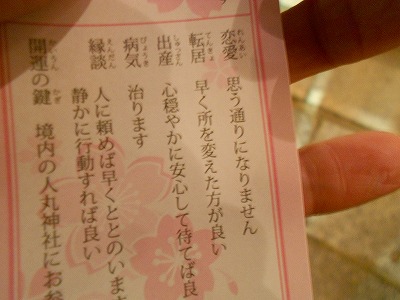 恋愛 思う通りになりません
れんあい
転居 早く所を変えた方が良い
てんきょ
出産 心穏やかに安心して待てば良
しゅっさん
病気 治ります
びょうき
縁談 人に頼めば早くととのいます
えんだん
静かに行動すれば良い
開運の鍵 境内の人丸神社にお参
かいうん かぎ